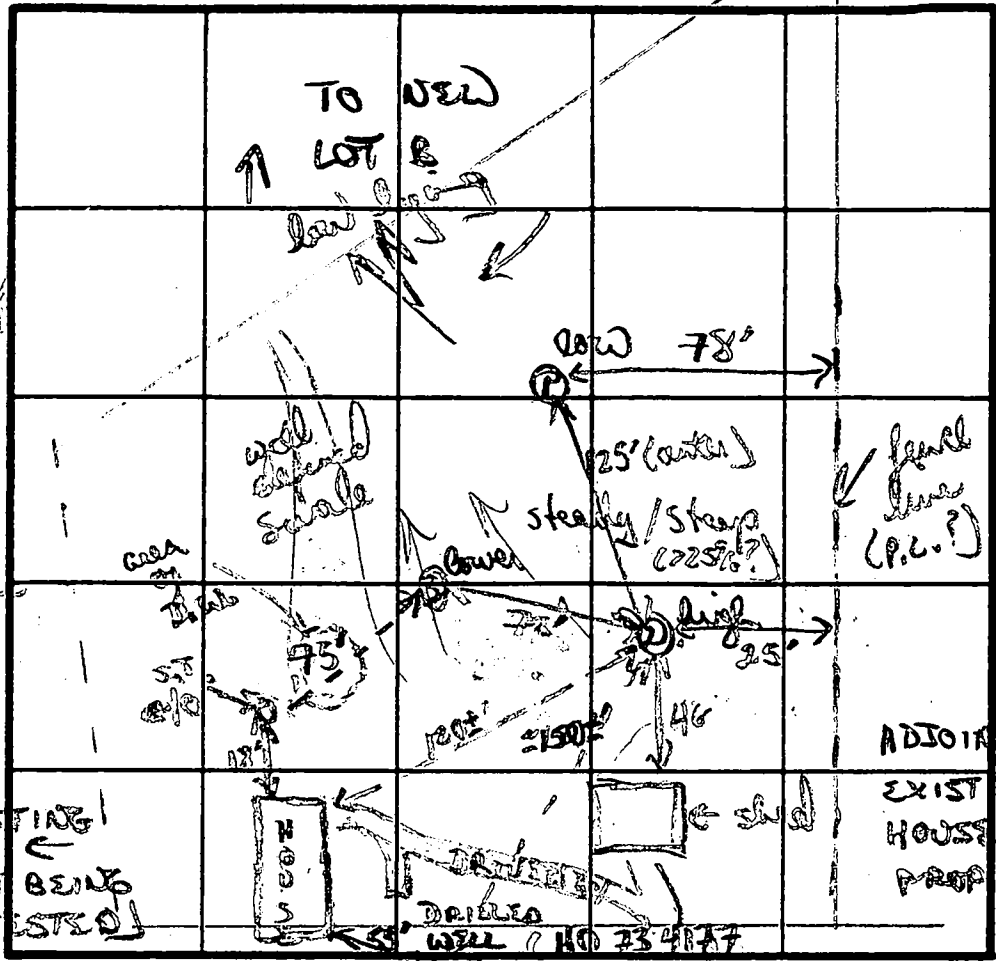 TO NEW
LOT B
low
low 78'
well
defined
swale
125' (center)
steady / steep
(>25%?)
fence
line
(P.L.?)
area
of
lower
high
75'
75'
25'
S.T.
c/o
18'
120±'
≈150±'
46
ADJOIN
EXIST
HOUSE
PROP
shed
TING
BEING
ESTED]
HOUS
DRIVEWAY
55'
DRILLED
WELL / HO 73 4177